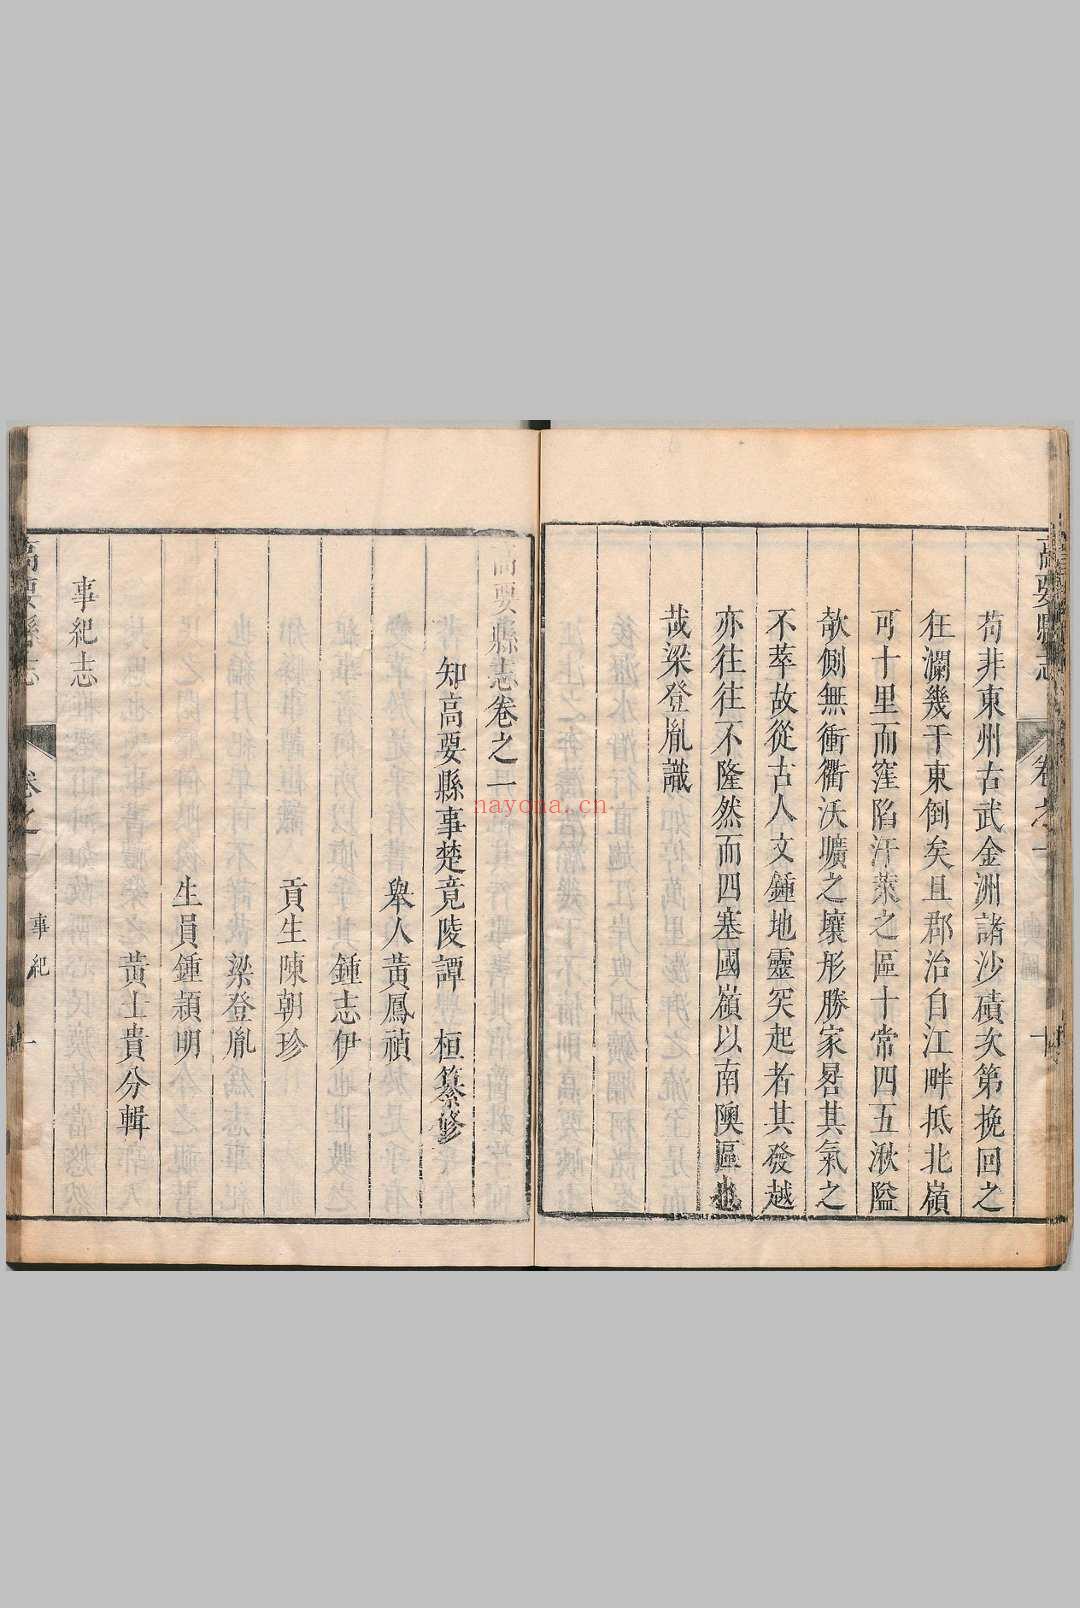 高要縣志 卷之一
苟非東州古武金洲諸沙磧次第挽回之
狂瀾幾于東倒矣且郡治自江畔抵北嶺
可十里而窪陷汙萊之區十常四五湫隘
欹側無衝衢沃曠之壤形勝家畧其氣之
不萃故從古人文鍾地靈突起者其發越
亦往往不隆然而四塞國嶺以南隩區也
哉梁登胤識
高要縣志卷之一
知高要縣事楚竟陵譚 桓纂修
舉人黃鳳禎
鍾志伊
貢生陳朝珍
梁登胤
生員鍾頴明
黃士貴分輯
事紀志
高要縣志 卷之一 事紀 一
nayona.cn